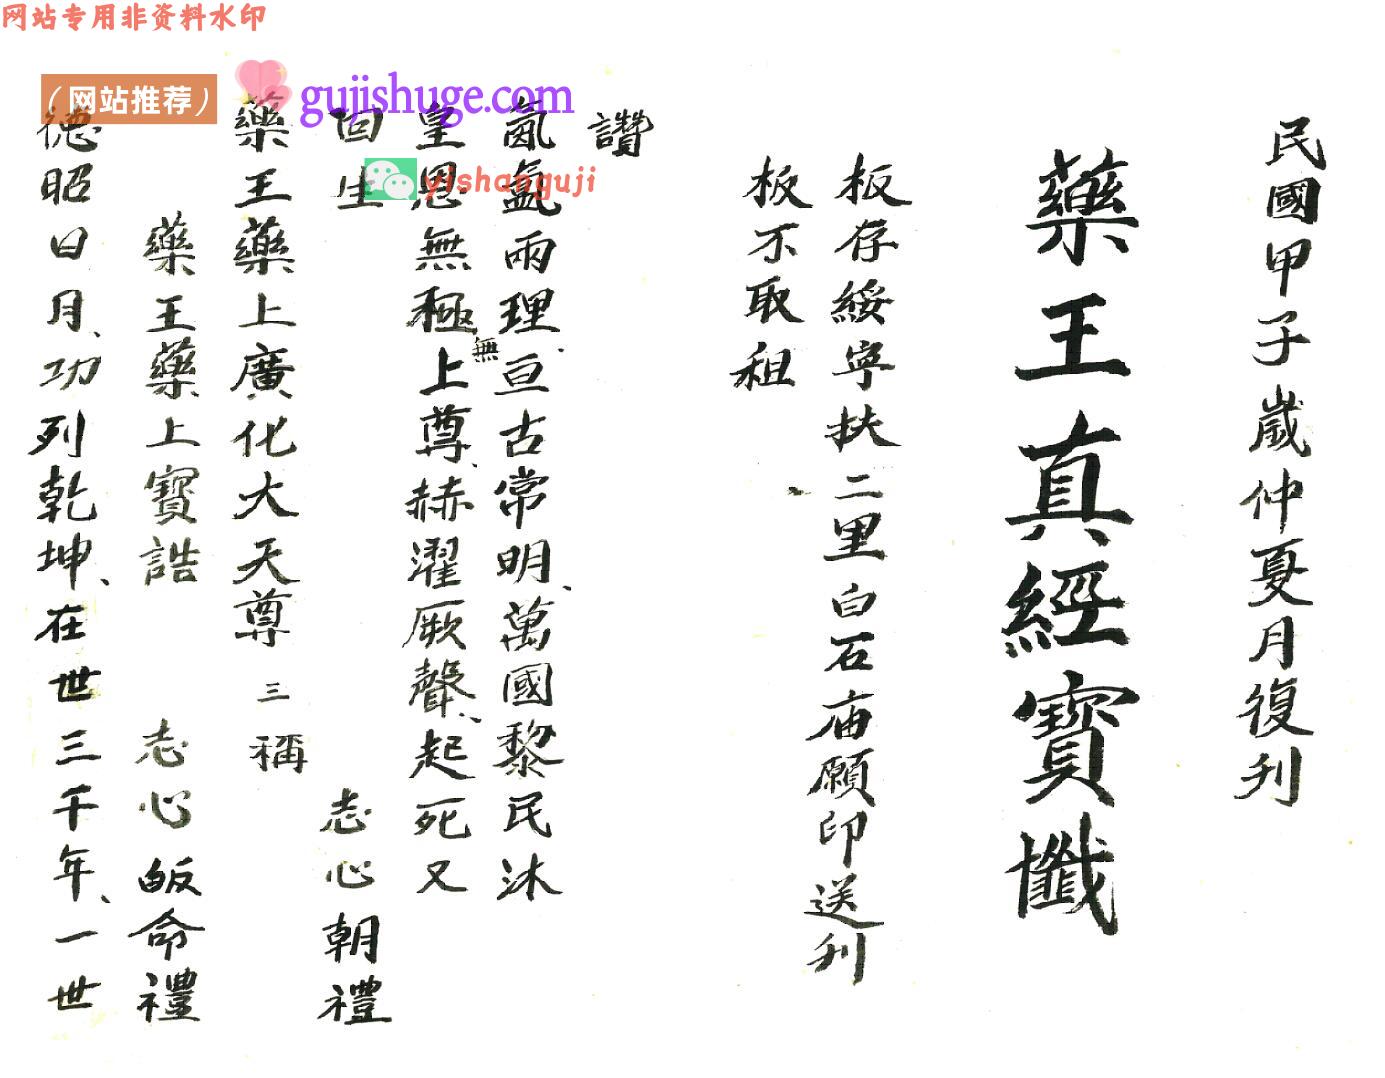 网站专用非资料水印
（网站推荐）
gujishuge.com
yishanguji
民國甲子歲仲夏月復刋
藥王真經寶懺
板存綏寜扶二里白石庙願印送刋
板不取租
讚
氤氳兩理亘古常明、萬國黎民沐
皇恩無極無上尊、赫濯厥聲、起死又
回生 志心朝禮
藥王藥上廣化大天尊 三稱
藥王藥上寶誥 志心皈命禮
德昭日月、功列乾坤、在世三千年、一世